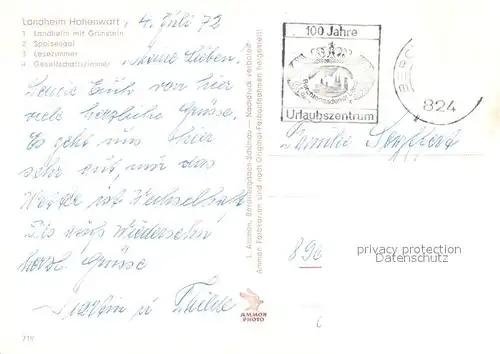 Landheim Hohenwart
1 Landheim mit Grünstein
2 Speisesaal
3 Lesezimmer
4 Gesellschaftszimmer
4. Juli 72
Meine Lieben!
Sende Euch von hier
viele herzliche Grüsse.
Es geht uns hier
sehr gut, nur das
Wetter ist wechselhaft
Bis aufs Wiedersehn
herzl. Grüsse
u.
719
L. Ammon, Berchtesgaden-Schönau — Nachdruck verboten
Ammon Farbkarten sind nach Original-Farbaufnahmen hergestellt
AMMON
PHOTO
100 Jahre
Urlaubszentrum
824
Familie
896
privacy protection
Datenschutz